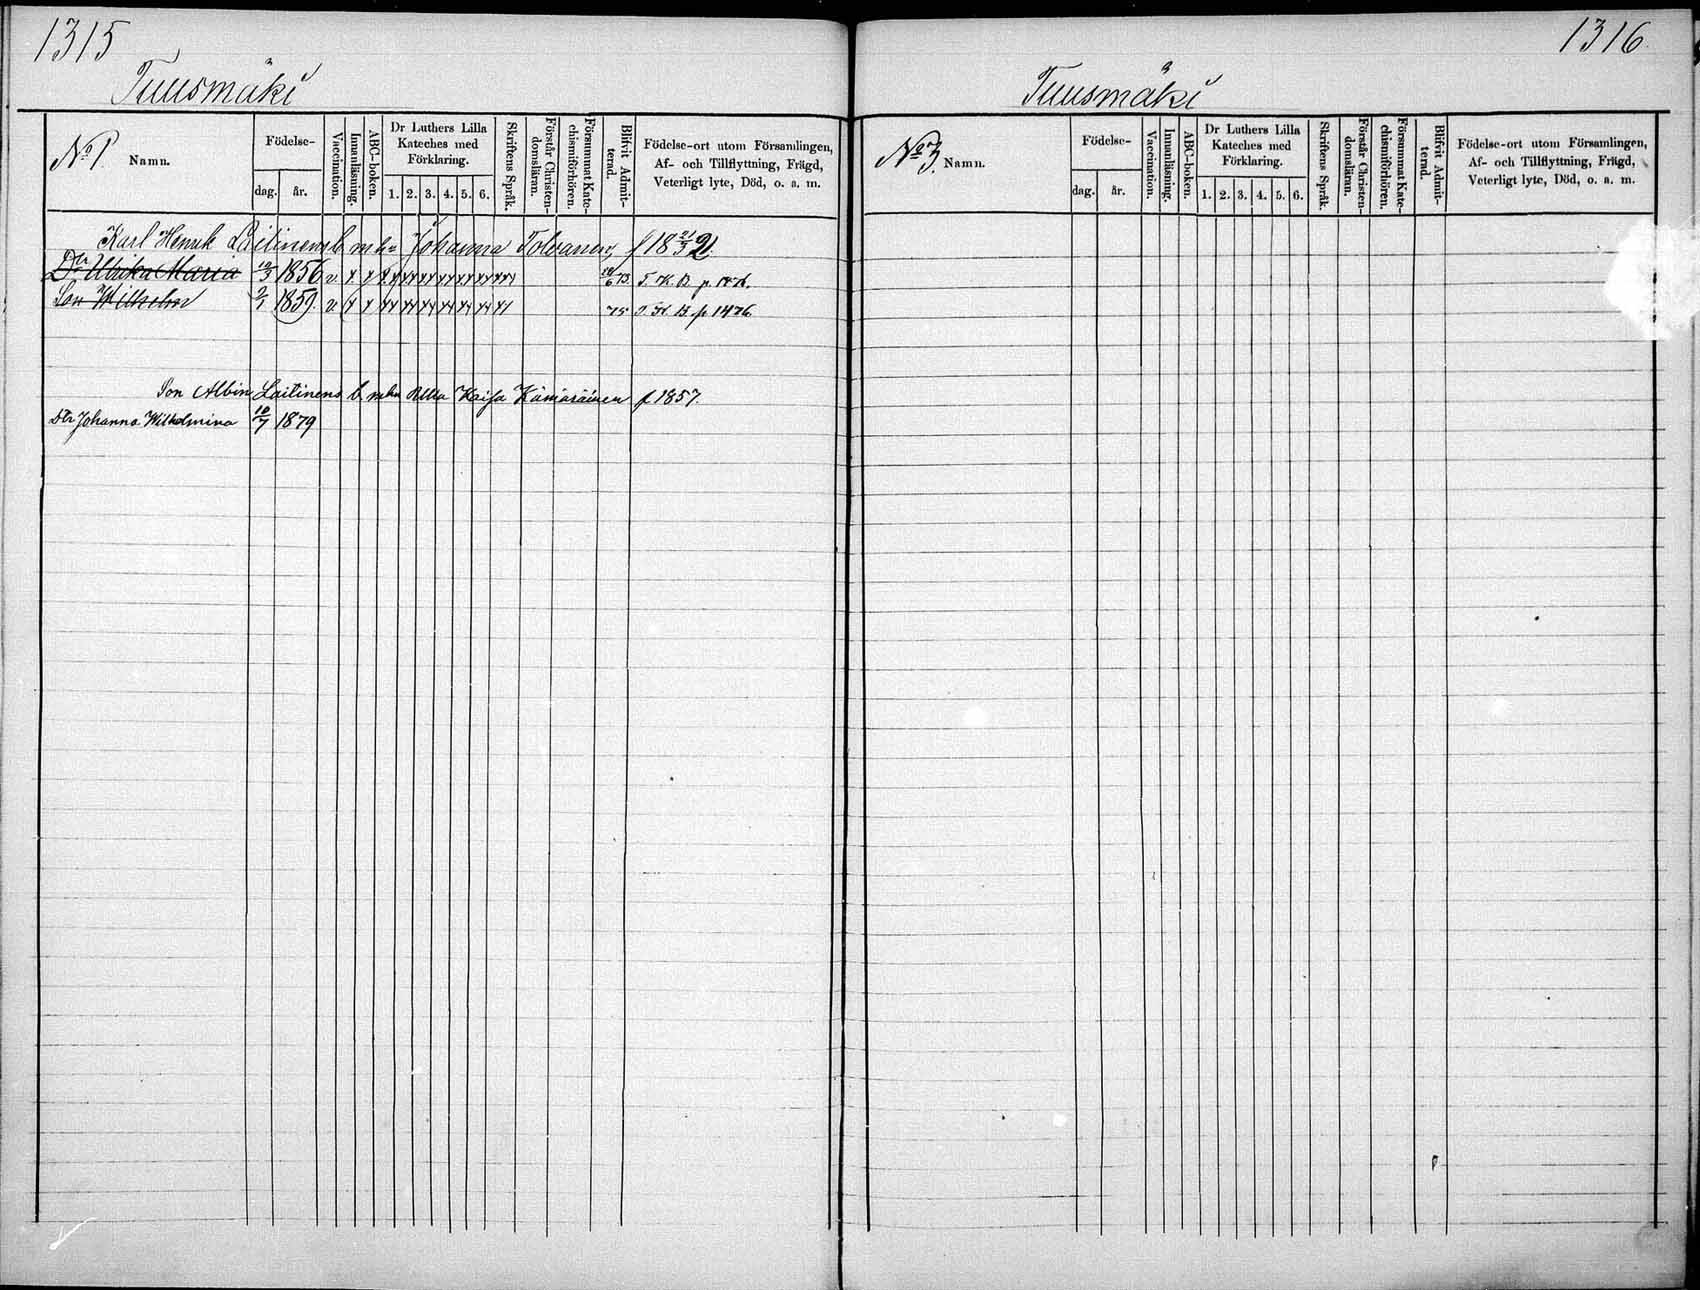 1315
Tuusmäki
No 1 Namn.
Födelse-
dag. år.
Vaccination.
Innanläsning.
ABC-boken.
Dr Luthers Lilla
Kateches med
Förklaring.
1. 2. 3. 4. 5. 6.
Skriftens Språk.
Förstår Christen-
domsläran.
Försummat Kate-
chismiförhören.
Blifvit Admit-
terad.
Födelse-ort utom Församlingen,
Af- och Tillflyttning, Frägd,
Veterligt lyte, Död, o. a. m.
Karl Henrik Laitinens b m hu Johanna Tolvanen, f 18 21/3 2
Dtr Ulrika Maria 1856 v.
Son Wilhelm 2/1 1859. v. 75 p 1476
Son Albin Laitinens b m hu Ulla Kaisa Kämäräinen f 1857.
Dtr Johanna Wilhelmina 10/7 1879
1316
Tuusmäki
No 3. Namn.
Födelse-
dag. år.
Vaccination.
Innanläsning.
ABC-boken.
Dr Luthers Lilla
Kateches med
Förklaring.
1. 2. 3. 4. 5. 6.
Skriftens Språk.
Förstår Christen-
domsläran.
Försummat Kate-
chismiförhören.
Blifvit Admit-
terad.
Födelse-ort utom Församlingen,
Af- och Tillflyttning, Frägd,
Veterligt lyte, Död, o. a. m.